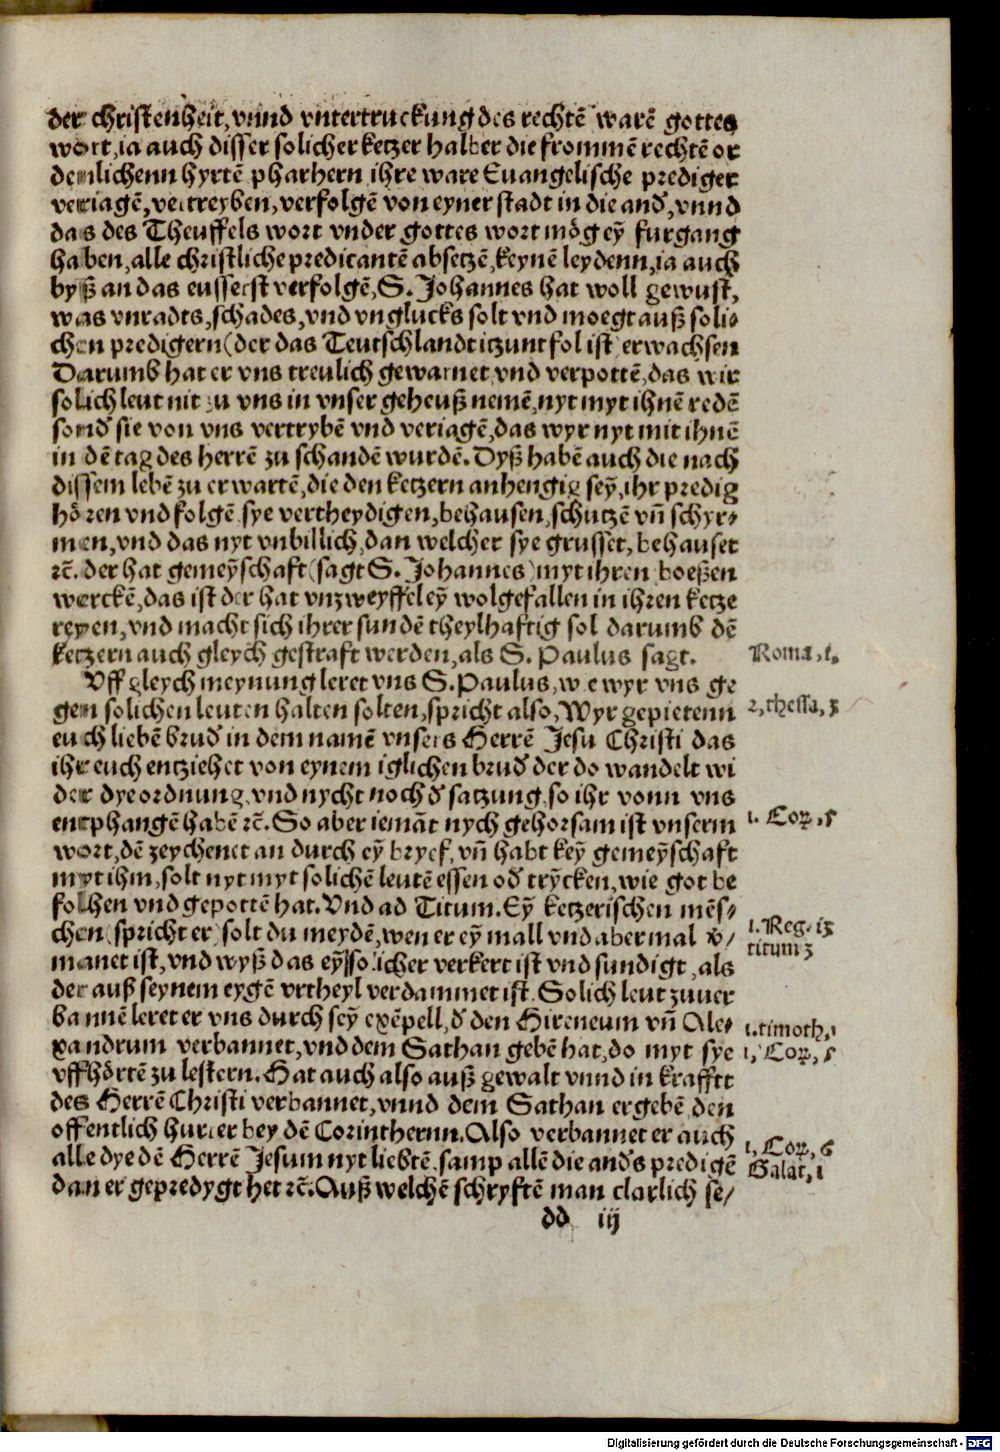 der christenheit, vnnd vntertruckung des rechtē warē gottes
wort, ia auch disser solicher ketzer halber die frommē rechtē or
denlichenn hyrtē pharhern ihre ware Euangelische prediger
veriagē, vertreyben, verfolgē von eyner stadt in die and̕, vnnd
das des Theuffels wort vnder gottes wort mög eȳ furgang
haben, alle christliche predicantē absetzē, keynē leydenn, ia auch
byß an das eusserst verfolgē, S. Johannes hat woll gewust,
was vnradts, schades, vnd vnglucks solt vnd moegt auß soli⸗
chen predigern (der das Teutschlandt itzunt fol ist) erwachsen
Darumb hat er vns treulich gewarnet vnd verpottē, das wir
solich leut nit zu vns in vnser geheuß nemē, nyt myt ihnē redē
sond̕ sie von vns vertrybē vnd veriagē, das wyr nyt mit ihnē
in dē tag des herrē zu schandē wurdē. Dyß habē auch die nach
dissem lebē zu erwartē, die den ketzern anhengig seȳ, ihr predig
hören vnd folgē sye vertheydigen, behausen, schutzē vn̄ schyr⸗
men, vnd das nyt vnbillich, dan welcher sye grusset, behauset
ꝛc̄. der hat gemeȳschaft (sagt S. Johannes) myt ihren boeßen
werckē, das ist der hat vnzweyffel eȳ wolgefallen in ihren ketze
reyen, vnd macht sich ihrer sundē theylhaftig sol darumb dē
ketzern auch gleych gestraft werden, als S. Paulus sagt. Roma, 1.
Vff gleych meynung leret vns S. Paulus, wie wyr vns ge
gen solichen leuten halten solten, spricht also, Wyr gepietenn 2, thessa, 3
euch liebē brud̕ in dem namē vnsers Herrē Jesu Christi das
ihr euch entziehet von eynem iglichen brud̕ der do wandelt wi
der dye ordnung, vnd nycht noch d̕ satzung, so ihr vonn vns
entphangē habē ꝛc̄. So aber iemāt nych gehorsam ist vnserm 1. Coꝝ, 5
wort, dē zeychenet an durch eȳ bryef, vn̄ habt keȳ gemeȳschaft
myt ihm, solt nyt myt solichē leutē essen od̕ trȳcken, wie got be
folhen vnd gepottē hat. Vnd ad Titum. Eȳ ketzerischen mēs⸗
chen (spricht er) solt du meydē, wen er eȳ mall vnd abermal v̕/ 1. Reg. 13
manet ist, vnd wyß das eȳ solicher verkert ist vnd sundigt, als titum 3
der auß seynem eygē vrtheyl verdammet ist. Solich leut zuuer
bannē leret er vns durch seȳ exēpell, d̕ den Hireneum vn̄ Ale⸗ 1. timoth, 1
xandrum verbannet, vnd dem Sathan gebē hat, do myt sye 1, Coꝝ, 5
vffhörtē zu lestern. Hat auch also auß gewalt vnnd in krafftt
des Herrē Christi verbannet, vnnd dem Sathan ergebē den
offentlich hurer bey dē Corinthernn. Also verbannet er auch 1, Coꝝ, 6
alle dye dē Herrē Jesum nyt liebtē, samp allē die and̕s predigē Galat, 1
dan er gepredygt het ꝛc̄. Auß welchē schryftē man clarlich se/
dd iij
Digitalisierung gefördert durch die Deutsche Forschungsgemeinschaft - DFG